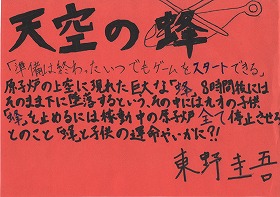 天空の蜂
「準備は終わった。いつでもゲームをスタートできる」
原子炉の上空に現れた巨大な「蜂」。8時間後には
そのまま下に墜落するという。その中には九才の子供
「蜂」を止めるには稼動中の原子炉全て停止させる
とのこと「蜂」と子供の運命やいかに?!
東野圭吾